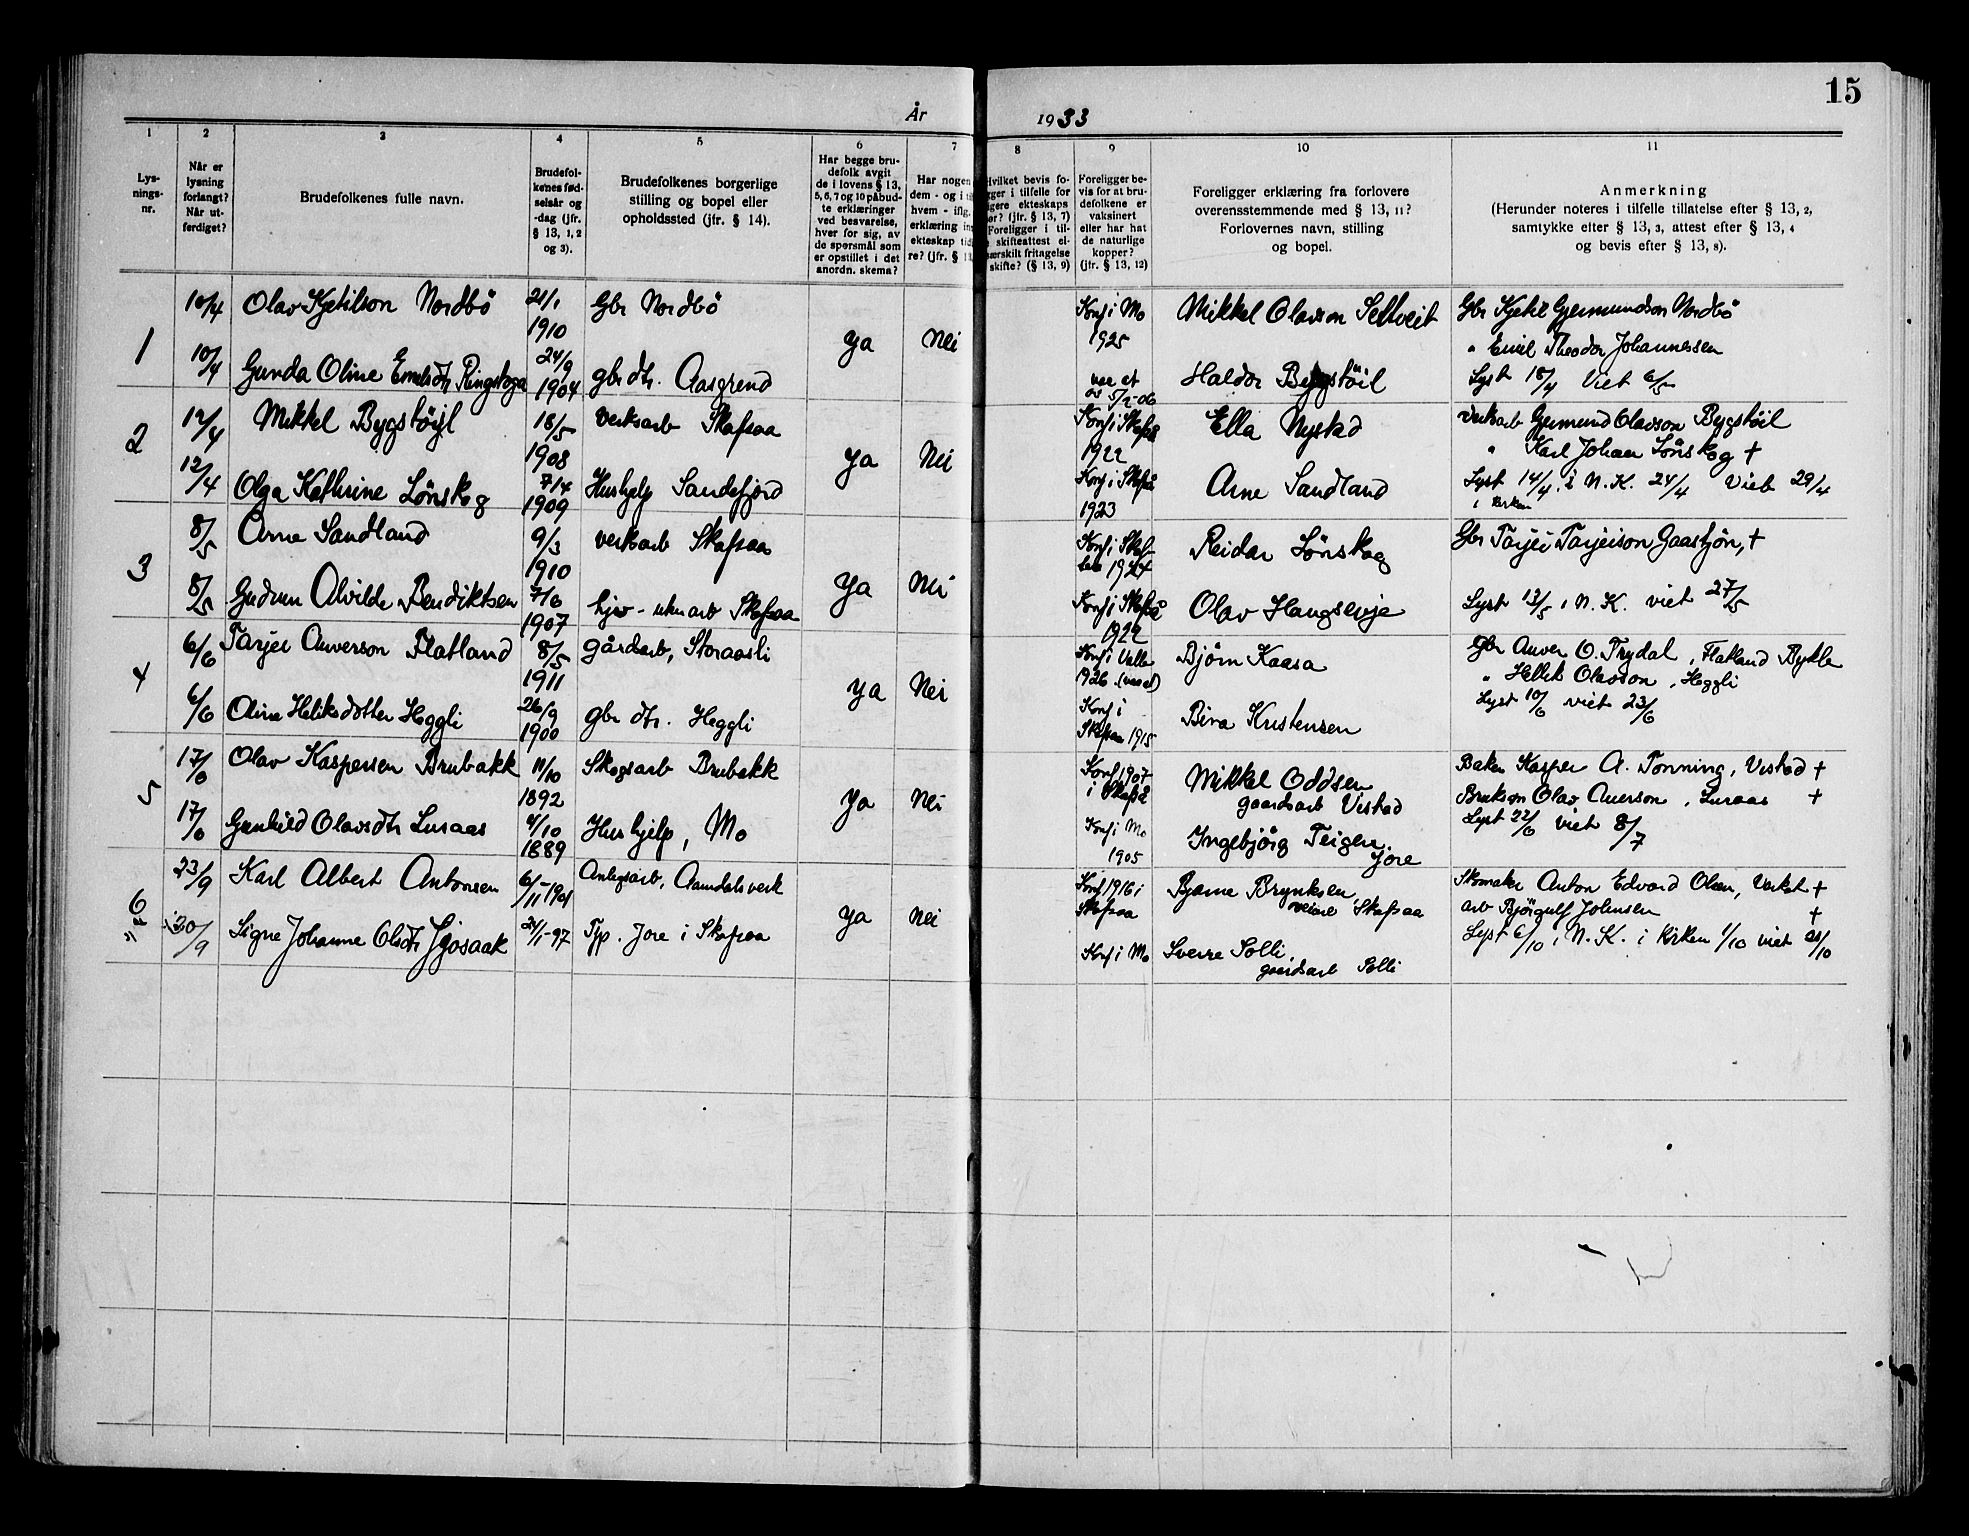 15
År 1933
1 2 3 4 5 6 7 8 9 10 11
Lys-
nings-
nr.
Når er
lysning
forlangt?
Når ut-
ferdiget?
Brudefolkenes fulle navn.
Brudefol-
kenes fød-
selsår og
-dag (jfr.
§ 13, 1, 2
og 3).
Brudefolkenes borgerlige
stilling og bopel eller
opholdssted (jfr. § 14).
Har begge bru-
defolk avgit
de i lovens § 13,
5, 6, 7 og 10 påbud-
te erklæringer
ved besvarelse,
hver for sig, av
de spørsmål som
er opstillet i det
anordn. skema?
Har nogen
dem - og i
hvem - iflg.
erklæring
ekteskap
re? (jfr. §
Hvilket bevis fo-
i tilfelle for
ekteskaps
(jfr. § 13, 7)
Foreligger i til-
skifteattest el-
særskilt fritagelse
skifte? (§ 13, 9)
Foreligger be-
vis for at bru-
defolkene er
vaksinert
eller har hat
de naturlige
kopper?
(jfr. § 13, 12)
Foreligger erklæring fra forlovere
overensstemmende med § 13, 11?
Forlovernes navn, stilling
og bopel.
Anmerkning
(Herunder noteres i tilfelle tillatelse efter § 13, 2,
samtykke efter § 13, 3, attest efter § 13, 4
og bevis efter § 13, 8).
1 10/4 Olav Kjetilson Nordbö 21/1 1910 Gbr Nordbö ya Nei Konf i Mo 1925 Mikkel Olavson Seltveit Gbr Kjetil Gjermundson Nordbö
" Emil Theodor Johannessen
10/4 Gunda Oline Emilsdtr Ringstoga 24/9 1904 gbr dtr. Aasgrend 5/2-06 Haldor Bygstöil Lyst 18/4 Viet 6/5
2 12/4 Mikkel Bygstöyl 18/5 1908 verksarb Skafsaa ya Nei Konf i Skafså 1922 Ella Nystad Verksarb Gjermund Olavson Bygstöil
" Karl Johan Lönskog †
12/4 Olga Kathrine Lönskog 7/4 1909 Hushjelp Sandefjord Konf i Skafså 1923 Arne Sandland Lyst 14/4, i N. K. 24/4 Viet 29/4
i kirken
3 8/5 Arne Sandland 9/3 1910 verksarb Skafsaa ya Nei Konf i Skaf- 1924 Reidar Lönskog Gbr Tarjei Tarjeison Gaastjön, †
8/5 Gudrun Alvilde Bendiktsen 7/6 1907 Skafsaa Konf i Skafså 1922 Olav Haugseuje Lyst 13/5 i N. K. viet 27/5
4 6/6 Tarjei Anverson Flatland 8/5 1911 gårdsarb, Storaasli ya Nei Konf i Valle 1926 Björn Kaasa Gbr Anver O. Trydal, Flatland Bykle
" Hellik Olavson, Heggli
6/6 Aline Heliksdotter Heggli 26/9 1900 gbr dtr. Heggli Konf i Skafsaa 1915 Bera Kristensen Lyst 10/6 viet 23/6
5 17/6 Olav Kaspersen Brubakk 11/10 1892 Skogsarb Brubakk ya Nei Konf 1907 i Skafså Mikkel Oddsen
gaardsarb Vistad
Kasper A. Tonning, Vistad †
17/6 Gunhild Olavsdtr Luraas 4/10 1889 Hushjelp, Mo Konf i Mo 1905 Ingebjörg Teigen.
Jore
Olav Auerson, Luraas †
Lyst 22/6 viet 8/7
6 23/9 Karl Albert Antonsen 6/11-1901 Anlegsarb, Aamdalsverk ya Nei Konf 1916 i Skafsaa Bjarne Brynksen,
Skafsaa
Skomaker Anton Edvard Olsen, Verket †
arb Björgulf Johnsen †
30/9 Signe Johanne Olsdtr 24/1-97 Jore i Skafsaa Konf i Mo Sverre Solli,
gaardsarb Solli
Lyst 6/10, i N. K. i kirken 1/10 viet